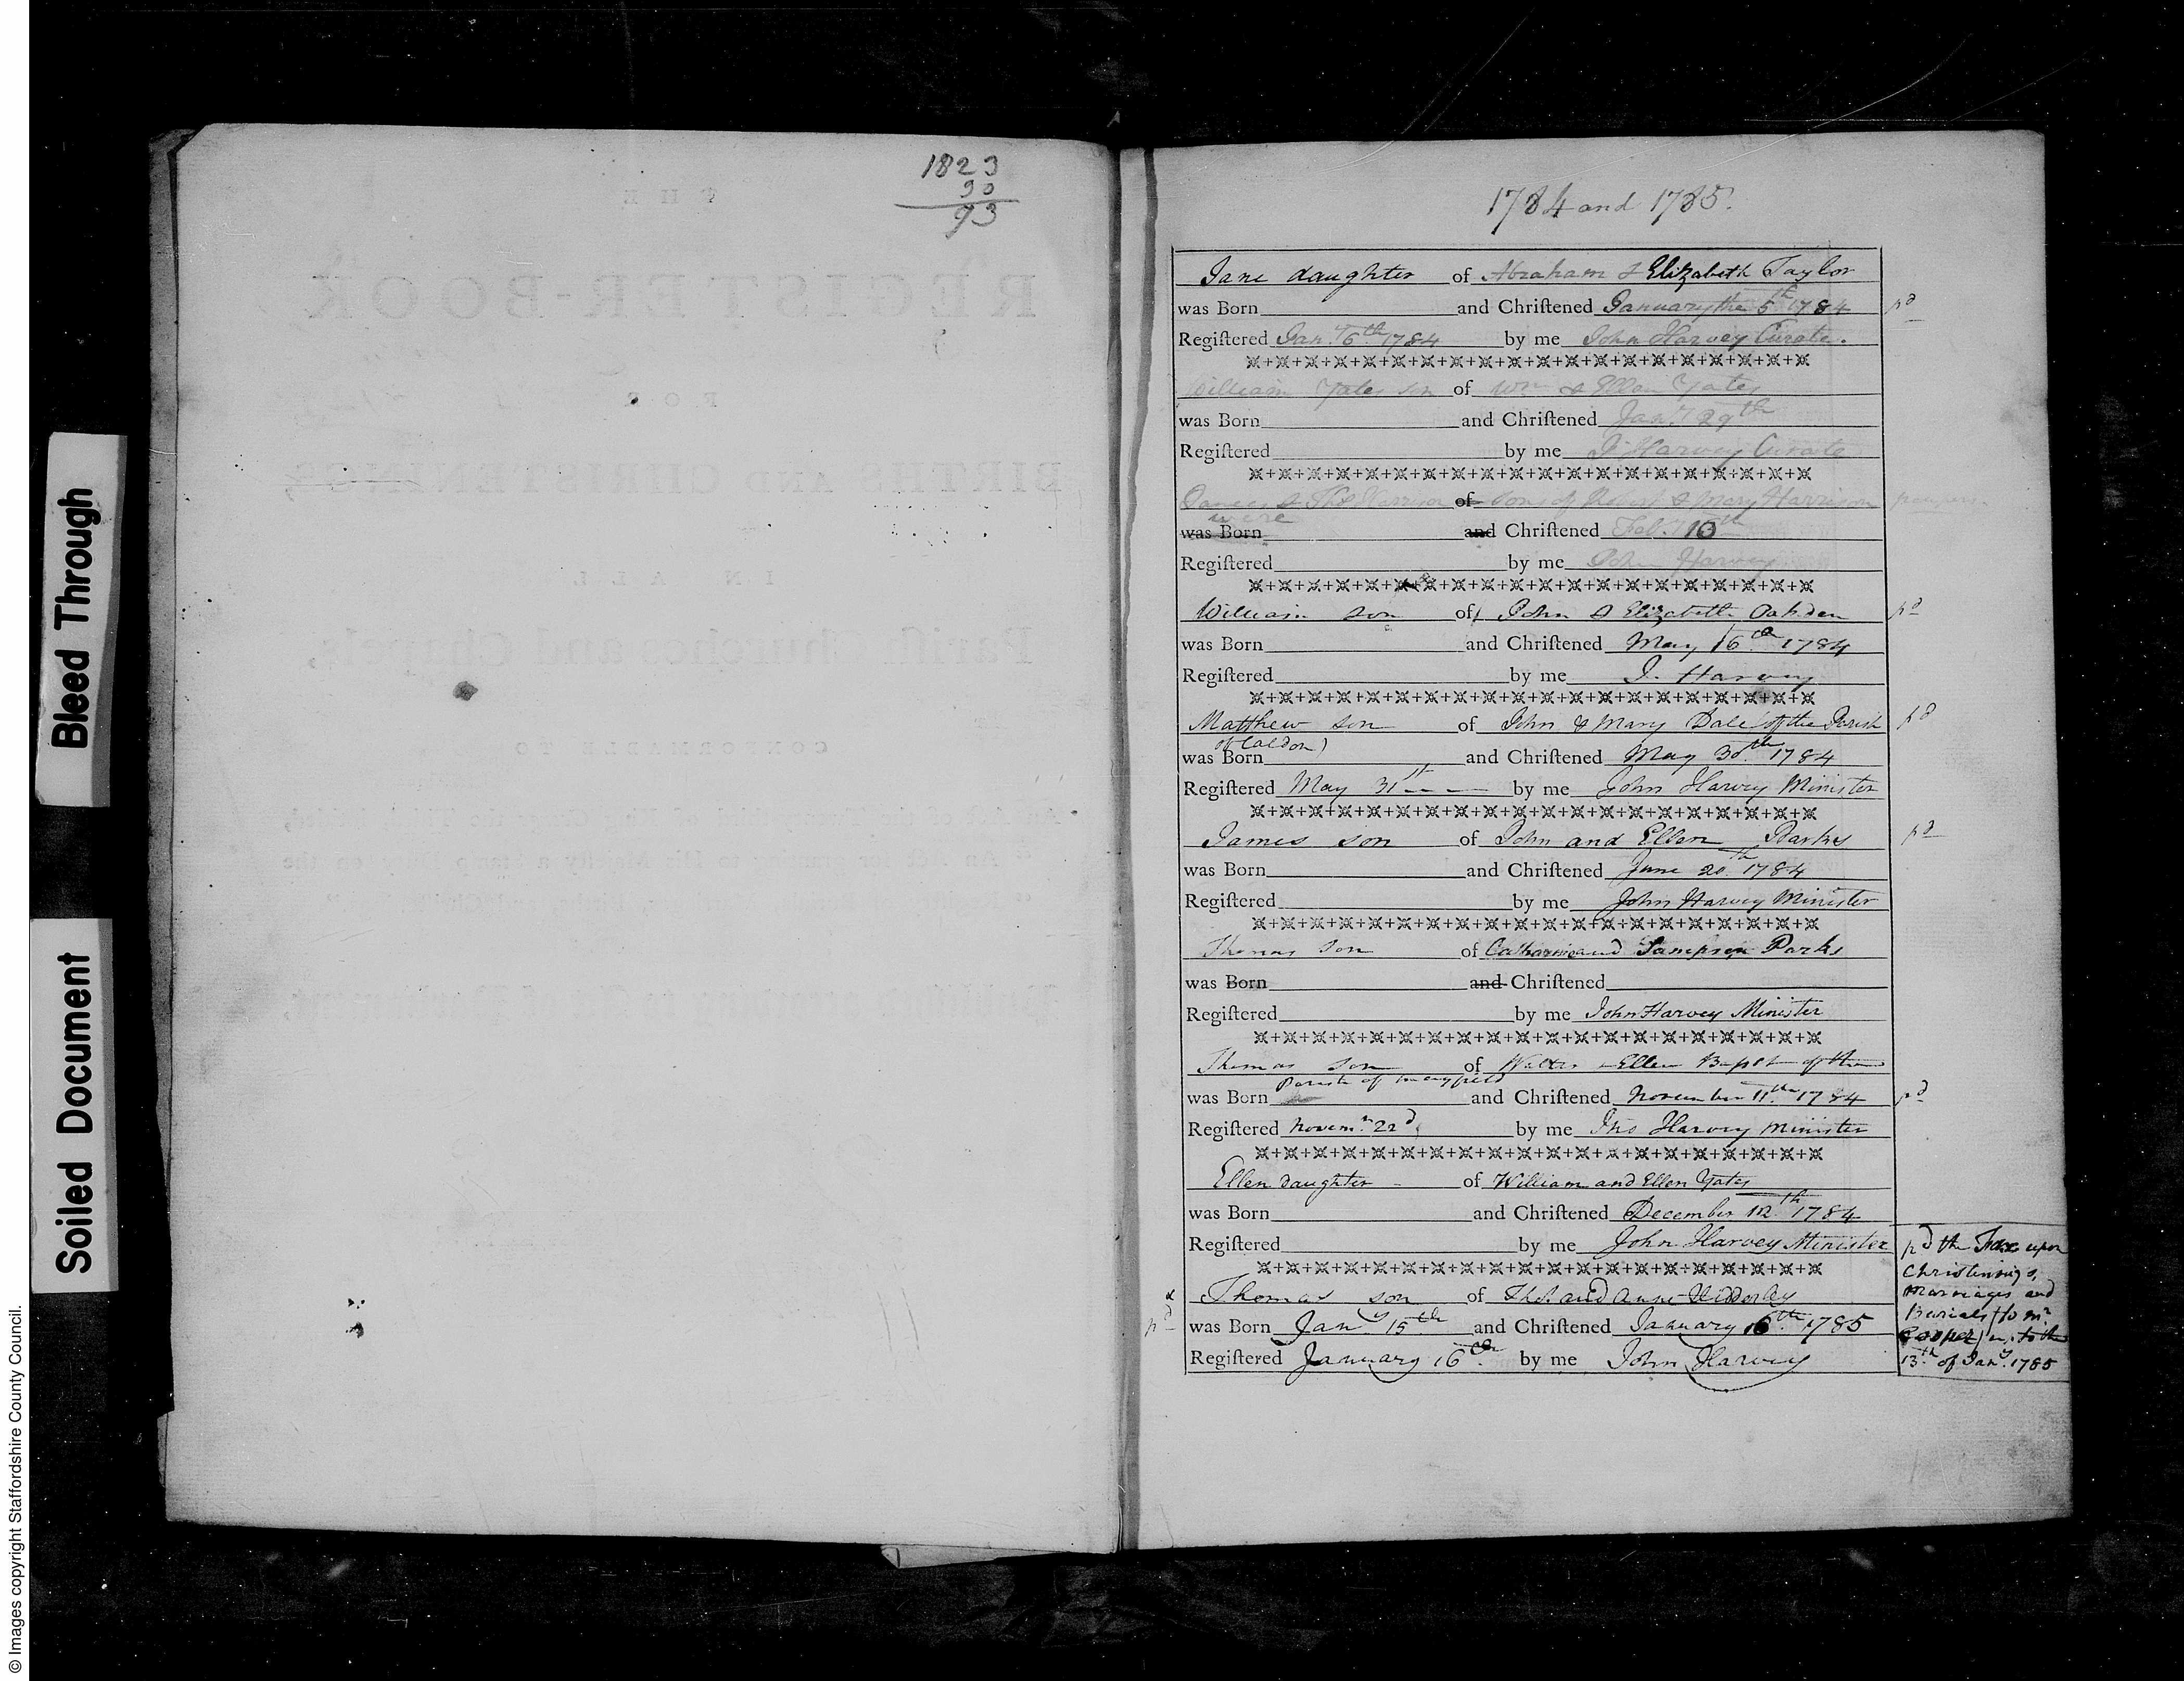 Bleed Through
Soiled Document
© Images copyright Staffordshire County Council.
1823
90
93
THE
REGISTER-BOOK
FOR
BIRTHS AND CHRISTENINGS,
IN ALL
Pariſh Churches and Chapels,
CONFORMABLE TO
1784 and 1785.
Jane daughter of Abraham & Elizabeth Taylor
was Born and Chriſtened January the 5th 1784 pd
Regiſtered Jan.y 6th 1784 by me John Harvey Curate.
William Yates son of Wm & Ellen Yates
was Born and Chriſtened Jan.y 29th
Regiſtered by me J. Harvey Curate
James & Thos Harrison of sons of Robert & Mary Harrison paupers.
were
was Born and Chriſtened Feb. 10th
Regiſtered by me John Harvey
William son of John & Elizabeth Oakden pd
was Born and Chriſtened May 16th 1784
Regiſtered by me J. Harvey
Matthew son of John & Mary Dale (of the Parish pd
of Caldon)
was Born and Chriſtened May 30th 1784
Regiſtered May 31st by me John Harvey Minister
James son of John and Ellen Parks pd
was Born and Chriſtened June 20th 1784
Regiſtered by me John Harvey Minister
Thomas son of Catharine and Sampson Parks
was Born and Chriſtened
Regiſtered by me John Harvey Minister
Thomas son of Walter Ellen of the
Parish of Mayfield
was Born and Chriſtened November 11th 1784 pd
Regiſtered Novem.r 22d by me Jno Harvey Minister
Ellen daughter of William and Ellen Yates
was Born and Chriſtened December 12th 1784
Regiſtered by me John Harvey Minister
Thomas son of Thos. and Anne
pd was Born Jan.y 15th and Chriſtened January 16th 1785
Regiſtered January 16th by me John Harvey
pd the Tax upon
Christenings,
Marriages and
Burials (to Mr
Cooper) to the
13th of Jan.y 1785